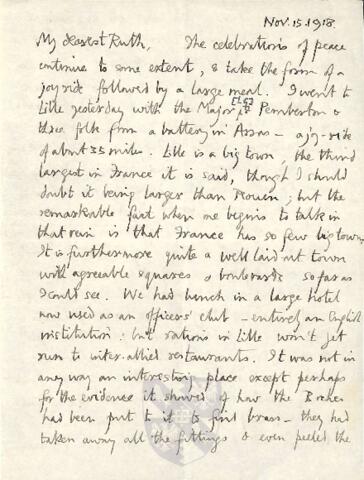 Nov. 15. 1918.
My dearest Ruth, The celebrations of peace
continue to some extent, & take the form of a
joyride followed by a large meal. I went to
Lille yesterday with the Major Pemberton &
three folk from a battery in Arras – a joy-ride
of about 35 miles. Lille is a big town, the third
largest in France it is said, though I should
doubt it being larger than Rouen; but the
remarkable fact when one begins to talk in
that vein is that France has so few big towns.
It is furthermore quite a well laid out town
with agreeable squares & boulevards so far as
I could see. We had lunch in a large hotel
now used as an officers' club – entirely an English
institution: but rations in Lille won't yet
run to inter-allied restaurants. It was not in
any way an interesting place except perhaps
for the evidence it showed of how the Boches
had been put to it to find brass – they had
taken away all the fittings & even peeled the